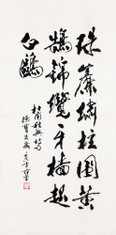 珠簾繡柱圍黃
鵠錦纜牙檣起
白鷗
杜甫秋興詩句